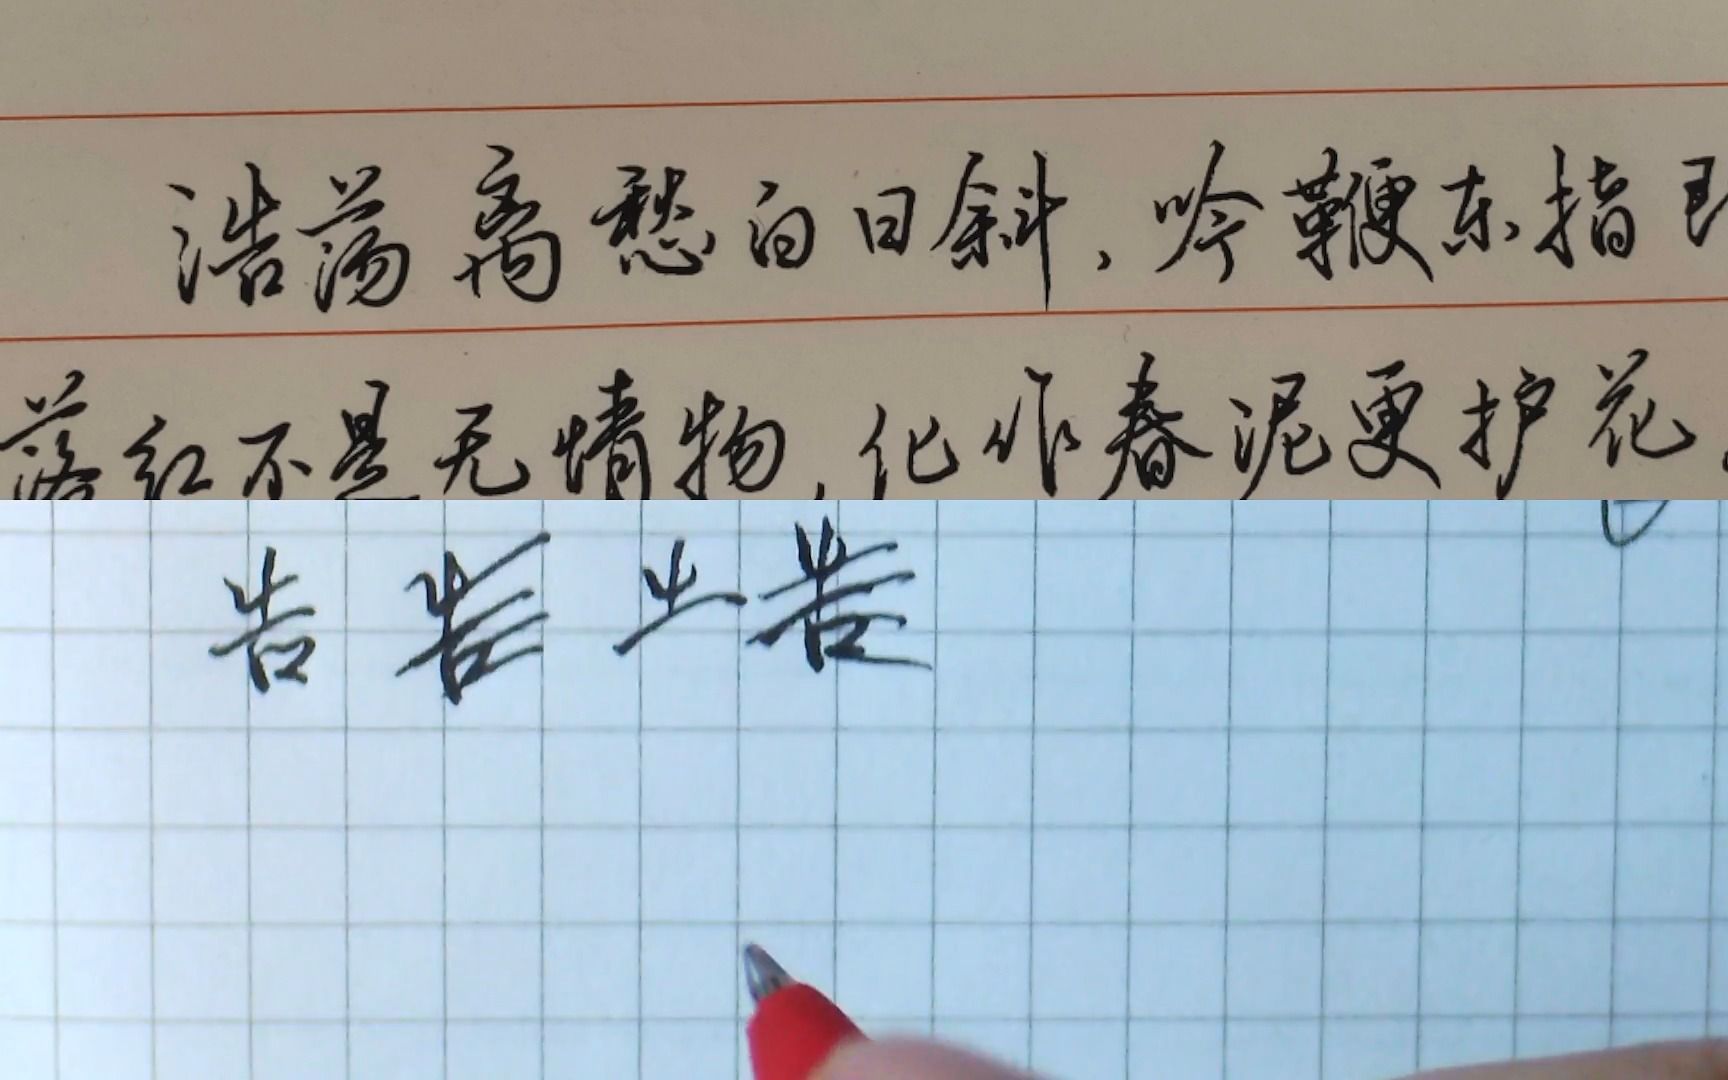 浩荡离愁白日斜,吟鞭东指即
落红不是无情物,化作春泥更护花
告 告 告